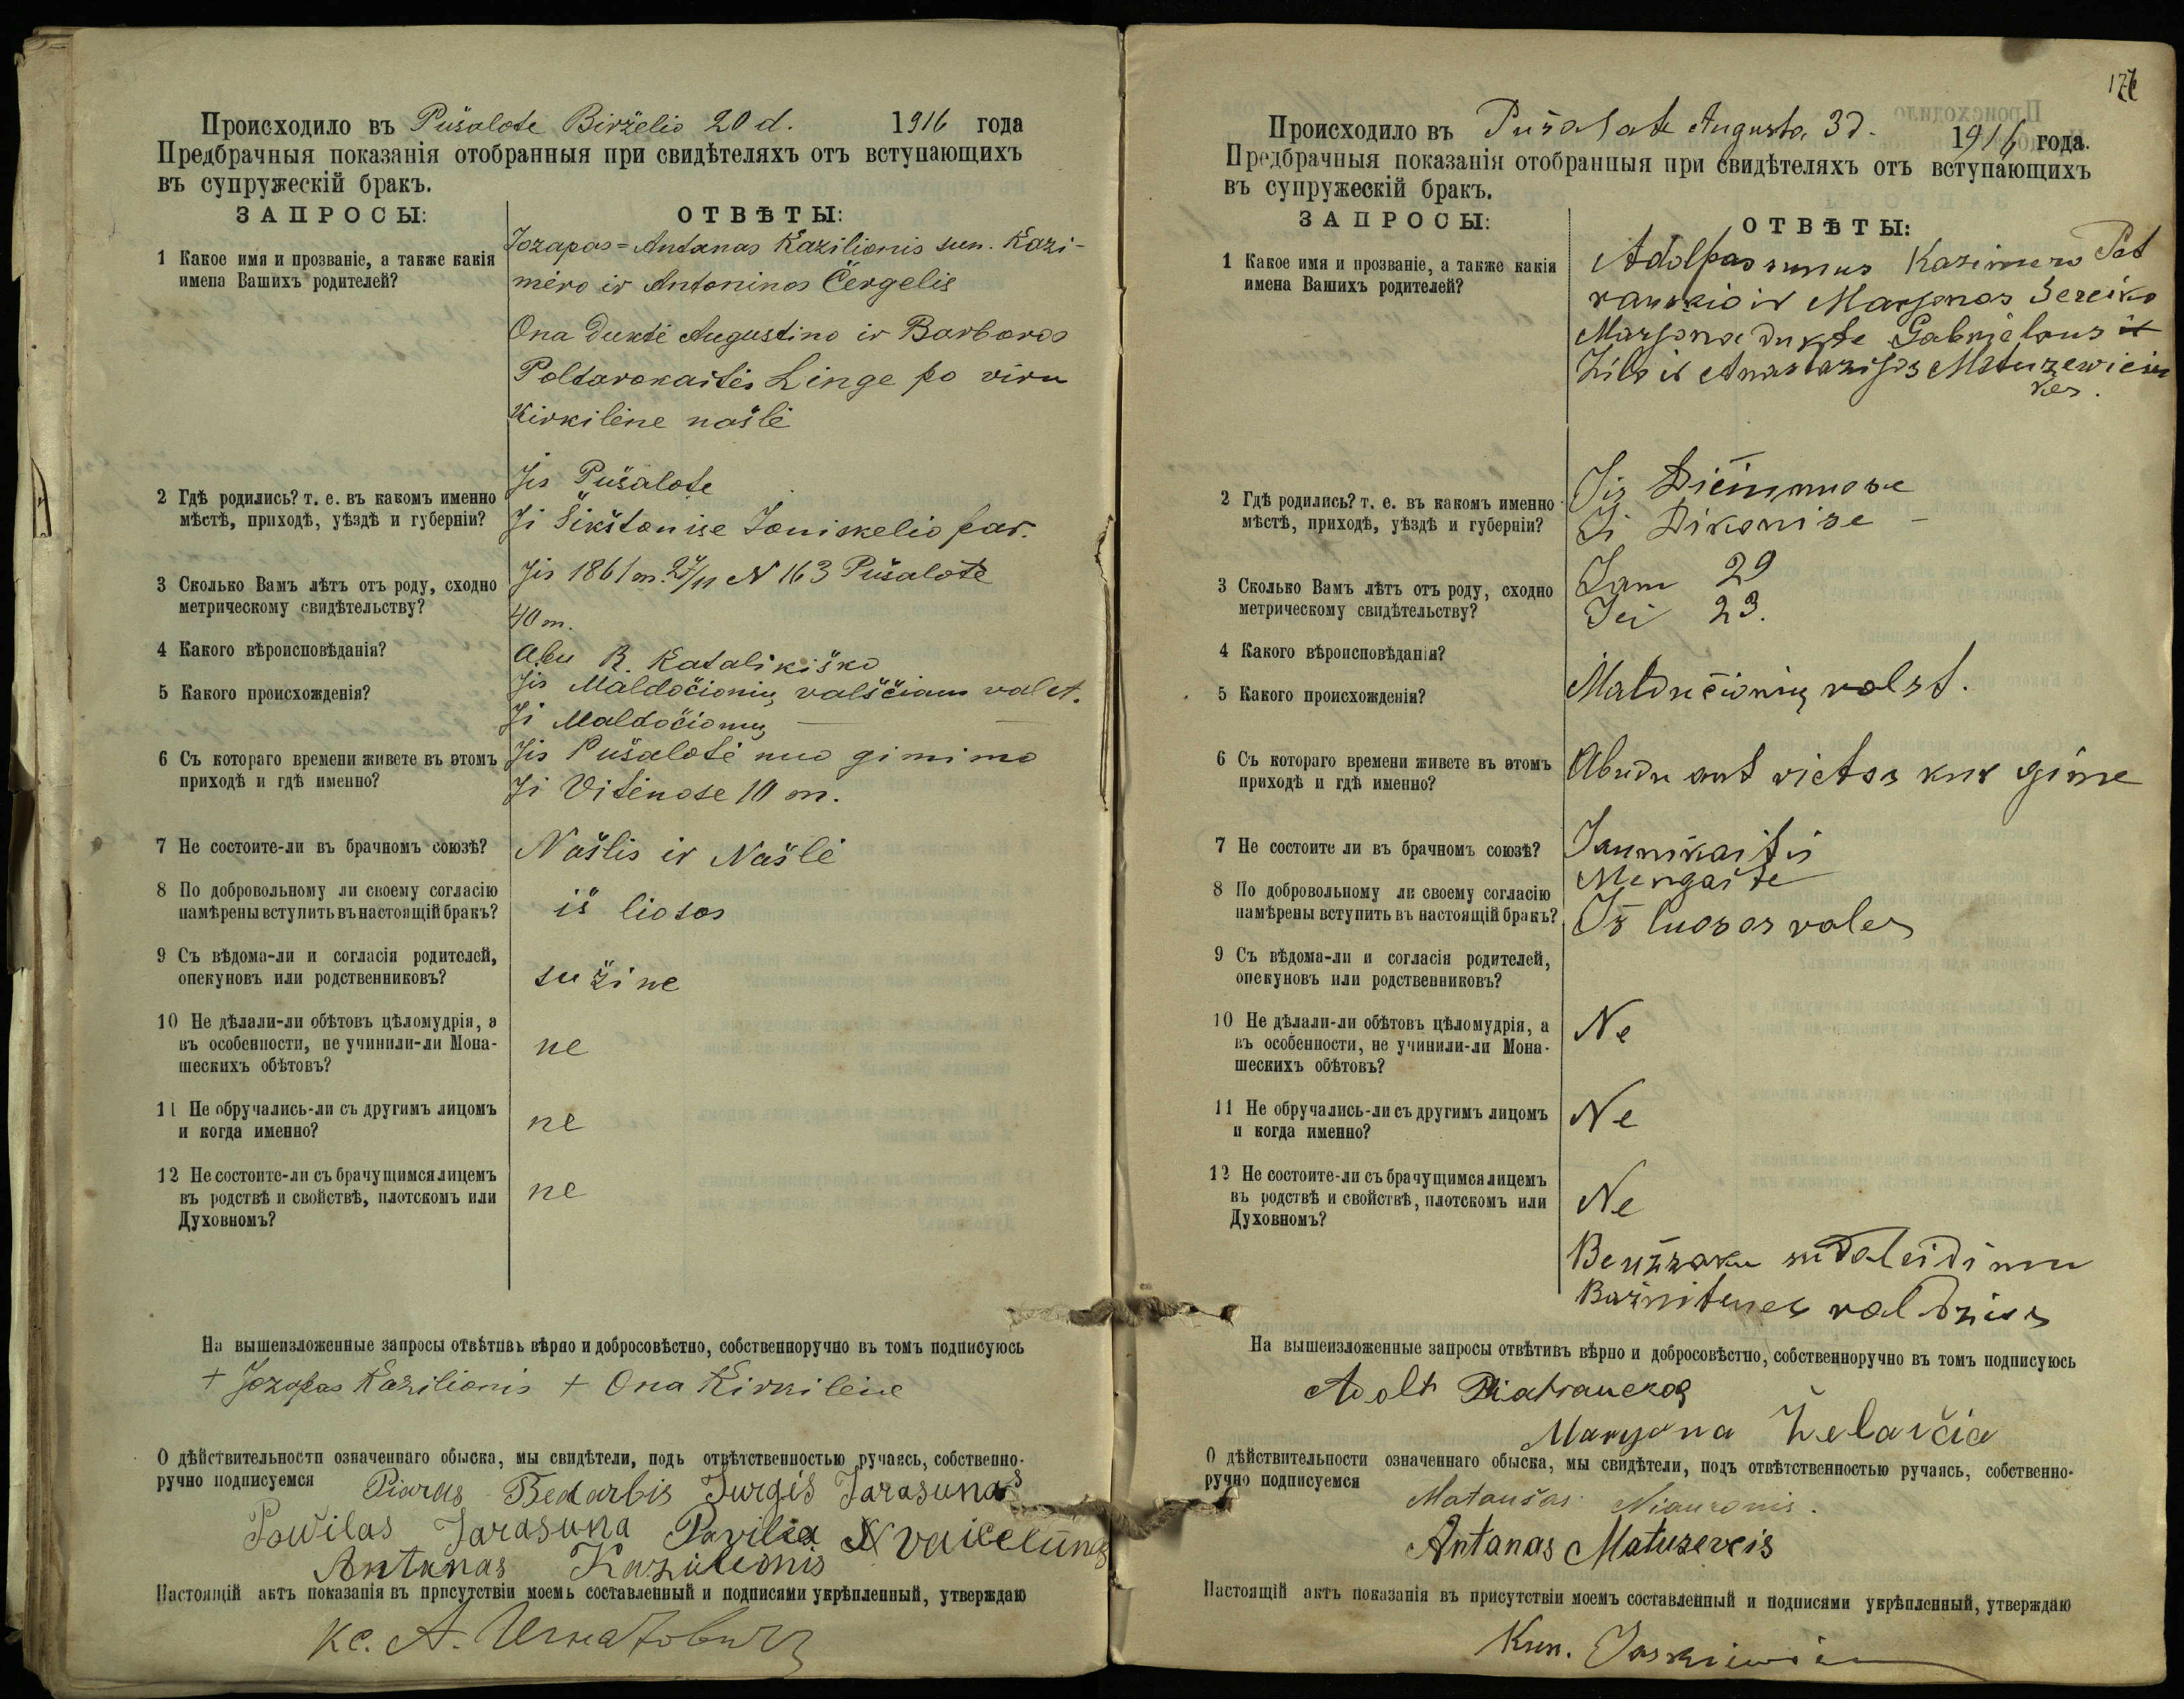 Происходило въ Pušalote Birželio 20 d. 1916 года
Предбрачныя показанія отобранныя при свидѣтеляхъ отъ вступающихъ
въ супружескій бракъ.
ЗАПРОСЫ: ОТВѢТЫ:
1 Какое имя и прозваніе, а также какія
имена Вашихъ родителей?
Jozapas=Antanas Kazilionis sun. Kazi-
mėro ir Antoninos Čergelis
Ona Duktė Augustino ir Barboros
Poltarokaitės Linge po viru
Kirkilėne našlė
2 Гдѣ родились? т. е. въ какомъ именно
мѣстѣ, приходѣ, уѣздѣ и губерніи?
Jis Pušalote
Ji Sikštonise Joniskelio par.
3 Сколько Вамъ лѣтъ отъ роду, сходно
метрическому свидѣтельству?
Jis 1861 m. 27/11 N 163 Pušalotė
40 m.
4 Какого вѣроисповѣданія?
Abu R. Katalikiško
5 Какого происхожденія?
Jis Maldočionių valščiaus valst.
Ji Maldočionių — —
6 Съ котораго времени живете въ этомъ
приходѣ и гдѣ именно?
Jis Pušalotė nuo gimimo
Ji Vitėnose 10 m.
7 Не состоите-ли въ брачномъ союзѣ?
Našlis ir Našlė
8 По добровольному ли своему согласію
намѣрены вступить въ настоящій бракъ?
iš liosos
9 Съ вѣдома-ли и согласія родителей,
опекуновъ или родственниковъ?
su žine
10 Не дѣлали-ли обѣтовъ цѣломудрія, а
въ особенности, не учинили-ли Мона-
шескихъ обѣтовъ?
ne
11 Не обручались-ли съ другимъ лицомъ
и когда именно?
ne
12 Не состоите-ли съ брачущимся лицемъ
въ родствѣ и свойствѣ, плотскомъ или
Духовномъ?
ne
На вышеизложенные запросы отвѣтивъ вѣрно и добросовѣстно, собственноручно въ томъ подписуюсь
+ Jozapas Kazilionis + Ona Kirkilėne
О дѣйствительности означеннаго обыска, мы свидѣтели, подъ отвѣтственностью ручаясь, собственно-
ручно подписуемся Piaras Bedarbis Jurgis Jarasunas
Powilas Jarasuna Pavilia
Antanas Kazilionis
Настоящій актъ показанія въ присутствіи моемъ составленный и подписями укрѣпленный, утверждаю
Кс. А.
Происходило въ Pušalate Augusta 3 d. 1916 года.
Предбрачныя показанія отобранныя при свидѣтеляхъ отъ вступающихъ
въ супружескій бракъ.
ЗАПРОСЫ: ОТВѢТЫ:
1 Какое имя и прозваніе, а также какія
имена Вашихъ родителей?
Adolpas sunus Kazimero Pet
rauskio ir Marjonos Sereiko
Marjona dukte Gabrielaus
ir Anastazijos Matuzewiciu
kes.
2 Гдѣ родились? т. е. въ какомъ именно
мѣстѣ, приходѣ, уѣздѣ и губерніи?
Jis
Ji Dikonise —
3 Сколько Вамъ лѣтъ отъ роду, сходно
метрическому свидѣтельству?
Jam 29
Jei 23.
4 Какого вѣроисповѣданія?
5 Какого происхожденія?
Maldučionių valst.
6 Съ котораго времени живете въ этомъ
приходѣ и гдѣ именно?
Abudu ant vietos kur gime
7 Не состоите ли въ брачномъ союзѣ?
Jaunikaitis
Mergaite
8 По добровольному ли своему согласію
намѣрены вступить въ настоящій бракъ?
Iš luosos vales
9 Съ вѣдома-ли и согласія родителей,
опекуновъ или родственниковъ?
10 Не дѣлали-ли обѣтовъ цѣломудрія, а
въ особенности, не учинили-ли Мона-
шескихъ обѣтовъ?
Ne
11 Не обручались-ли съ другимъ лицомъ
и когда именно?
Ne
12 Не состоите-ли съ брачущимся лицемъ
въ родствѣ и свойствѣ, плотскомъ или
Духовномъ?
Ne
Be užsaku su daleidimu
Bažnitines valdzios
На вышеизложенные запросы отвѣтивъ вѣрно и добросовѣстно, собственноручно въ томъ подписуюсь
Adolf
Maryona Želavčia
О дѣйствительности означеннаго обыска, мы свидѣтели, подъ отвѣтственностью ручаясь, собственно-
ручно подписуемся Mataušas Niauronis.
Antanas Matuzeveis
Настоящій актъ показанія въ присутствіи моемъ составленный и подписями укрѣпленный, утверждаю
Kun. Jaskiewicz